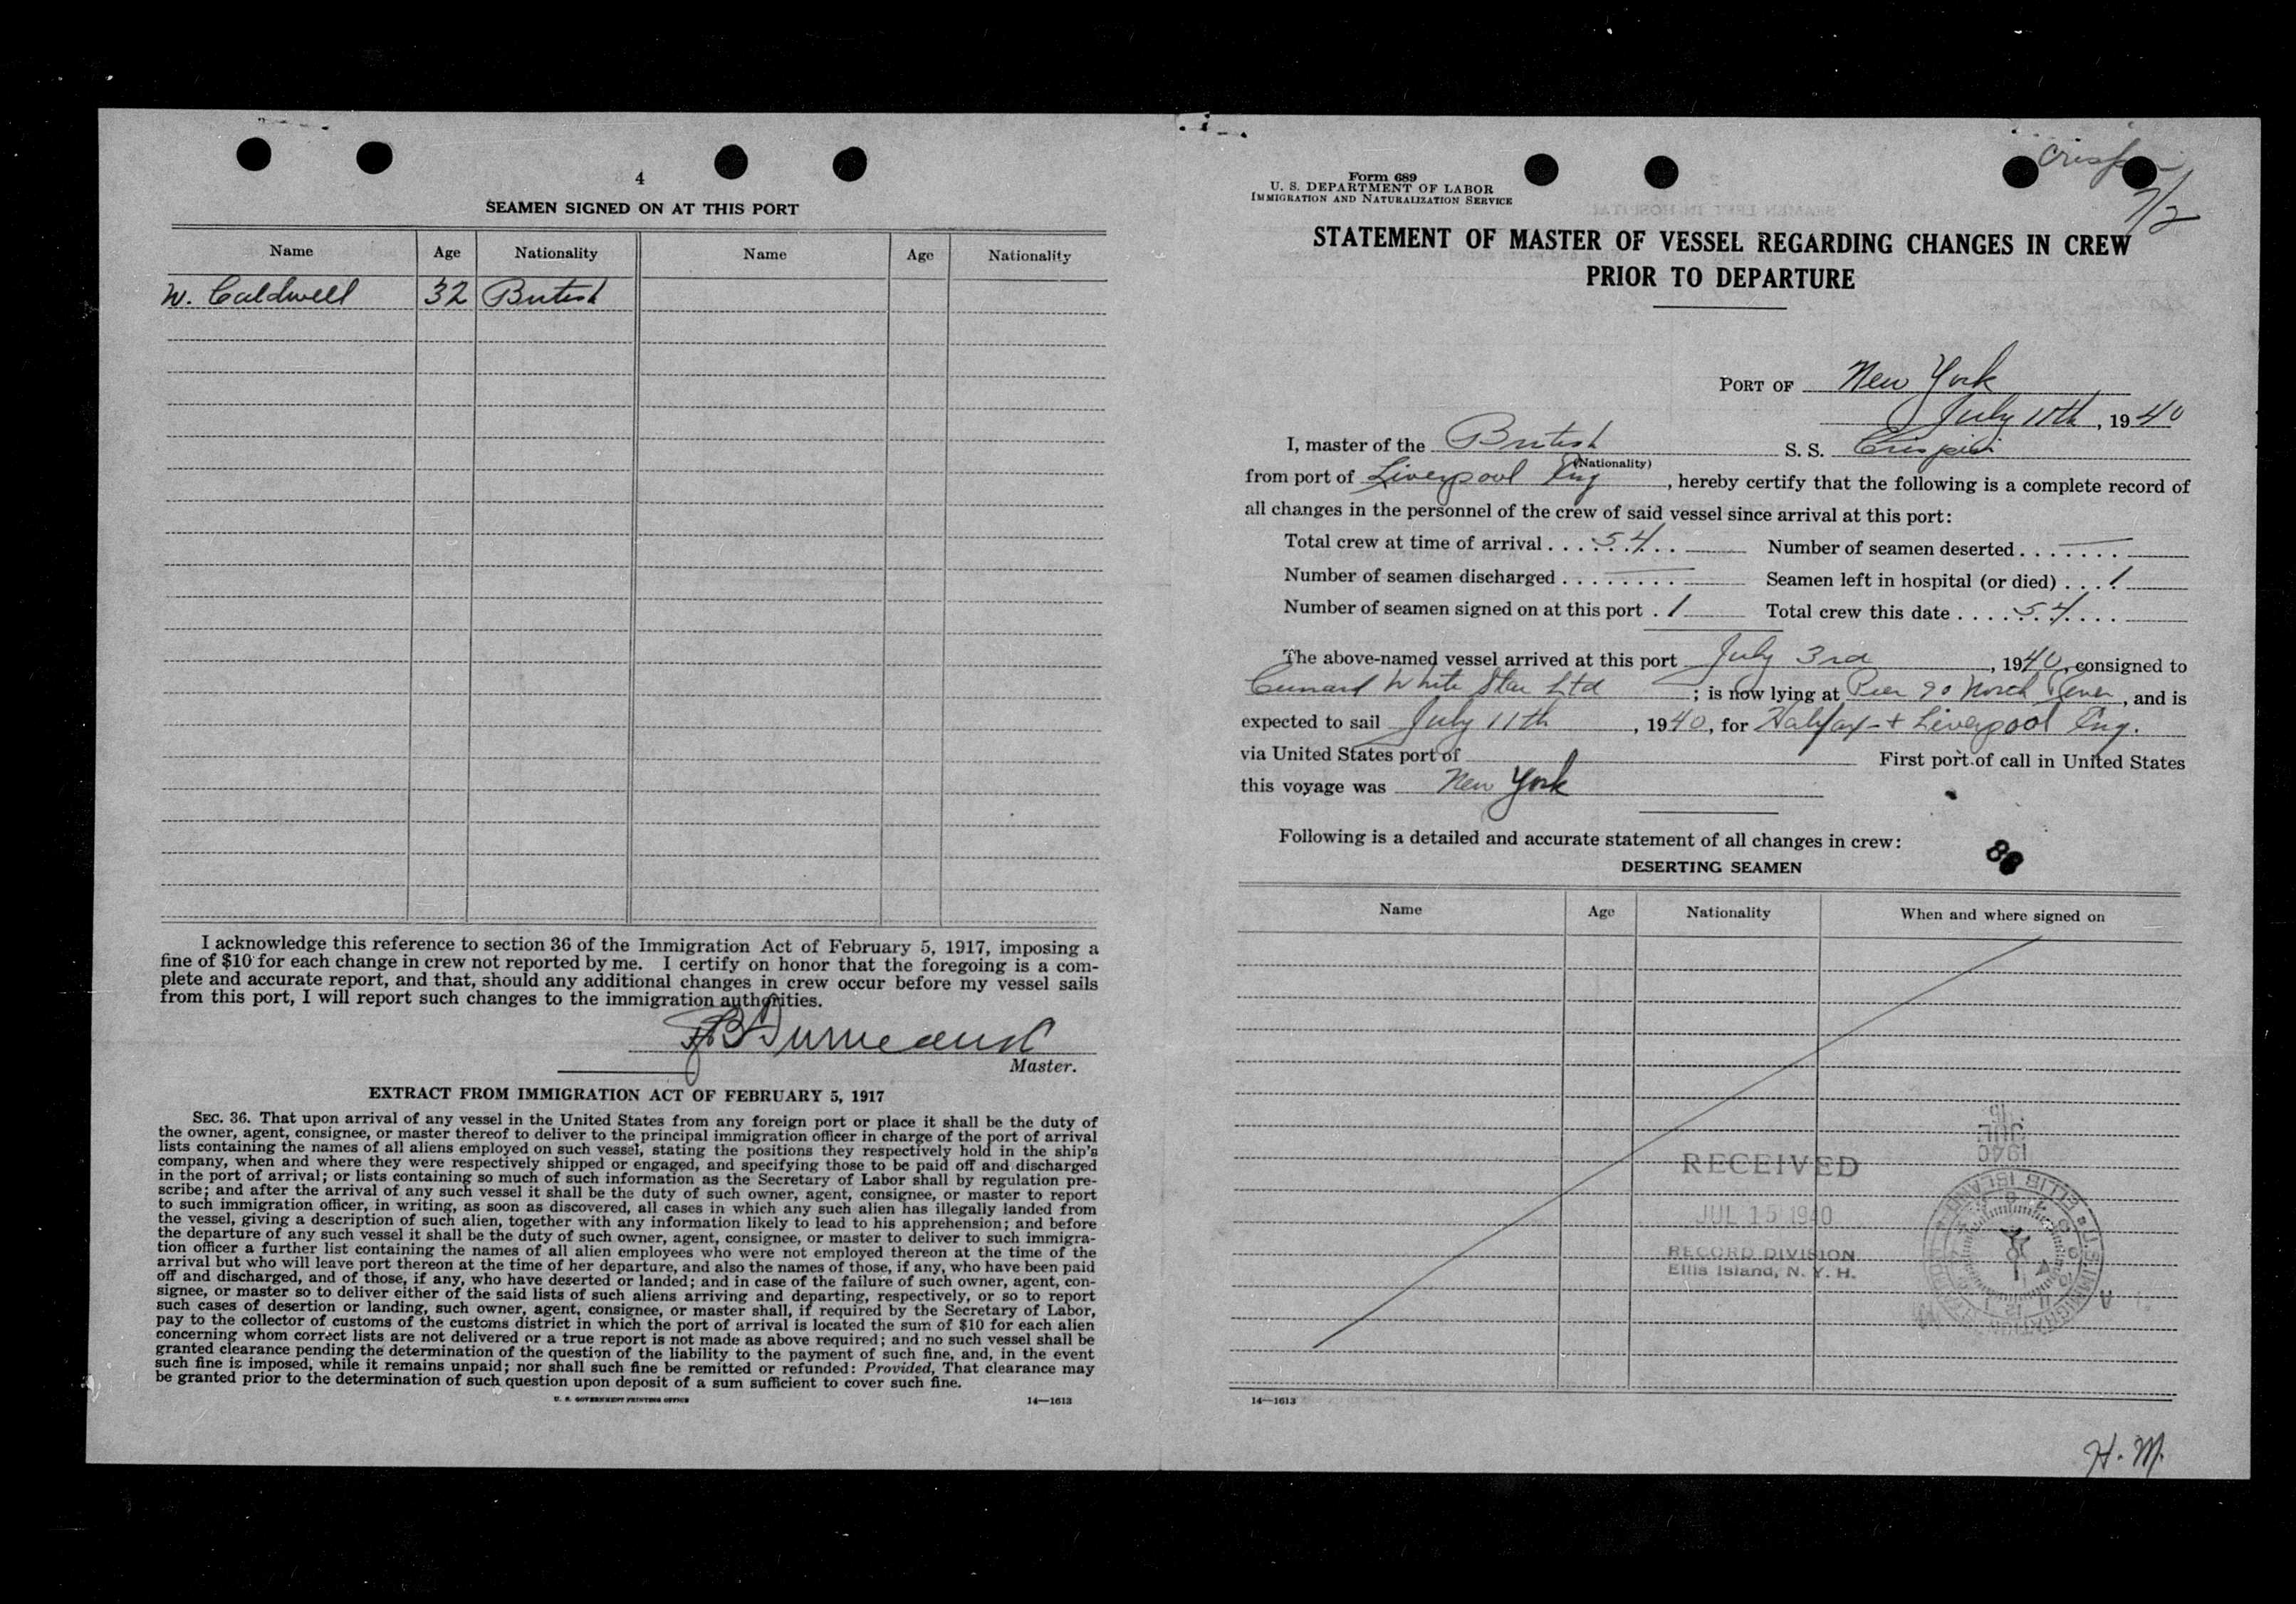 4
SEAMEN SIGNED ON AT THIS PORT
Name Age Nationality Name Age Nationality
W. Caldwell 32 British
I acknowledge this reference to section 36 of the Immigration Act of February 5, 1917, imposing a
fine of $10 for each change in crew not reported by me. I certify on honor that the foregoing is a com-
plete and accurate report, and that, should any additional changes in crew occur before my vessel sails
from this port, I will report such changes to the immigration authorities.
Master.
EXTRACT FROM IMMIGRATION ACT OF FEBRUARY 5, 1917
SEC. 36. That upon arrival of any vessel in the United States from any foreign port or place it shall be the duty of
the owner, agent, consignee, or master thereof to deliver to the principal immigration officer in charge of the port of arrival
lists containing the names of all aliens employed on such vessel, stating the positions they respectively hold in the ship's
company, when and where they were respectively shipped or engaged, and specifying those to be paid off and discharged
in the port of arrival; or lists containing so much of such information as the Secretary of Labor shall by regulation pre-
scribe; and after the arrival of any such vessel it shall be the duty of such owner, agent, consignee, or master to report
to such immigration officer, in writing, as soon as discovered, all cases in which any such alien has illegally landed from
the vessel, giving a description of such alien, together with any information likely to lead to his apprehension; and before
the departure of any such vessel it shall be the duty of such owner, agent, consignee, or master to deliver to such immigra-
tion officer a further list containing the names of all alien employees who were not employed thereon at the time of the
arrival but who will leave port thereon at the time of her departure, and also the names of those, if any, who have been paid
off and discharged, and of those, if any, who have deserted or landed; and in case of the failure of such owner, agent, con-
signee, or master so to deliver either of the said lists of such aliens arriving and departing, respectively, or so to report
such cases of desertion or landing, such owner, agent, consignee, or master shall, if required by the Secretary of Labor,
pay to the collector of customs of the customs district in which the port of arrival is located the sum of $10 for each alien
concerning whom correct lists are not delivered or a true report is not made as above required; and no such vessel shall be
granted clearance pending the determination of the question of the liability to the payment of such fine, and, in the event
such fine is imposed, while it remains unpaid; nor shall such fine be remitted or refunded: Provided, That clearance may
be granted prior to the determination of such question upon deposit of a sum sufficient to cover such fine.
U. S. GOVERNMENT PRINTING OFFICE 14—1613
7/2
Form 689
U. S. DEPARTMENT OF LABOR
IMMIGRATION AND NATURALIZATION SERVICE
STATEMENT OF MASTER OF VESSEL REGARDING CHANGES IN CREW
PRIOR TO DEPARTURE
PORT OF New York
July 11th, 1940
I, master of the British S. S. Crispin
(Nationality)
from port of Liverpool Eng, hereby certify that the following is a complete record of
all changes in the personnel of the crew of said vessel since arrival at this port:
Total crew at time of arrival .... 54 Number of seamen deserted ....... —
Number of seamen discharged ........ — Seamen left in hospital (or died) .... 1
Number of seamen signed on at this port . 1 Total crew this date ..... 54
The above-named vessel arrived at this port July 3rd, 1940, consigned to
Cunard White Star Ltd; is now lying at Pier 90 North River, and is
expected to sail July 11th, 1940, for Halifax + Liverpool Eng.
via United States port of First port of call in United States
this voyage was New York
Following is a detailed and accurate statement of all changes in crew:
DESERTING SEAMEN
Name Age Nationality When and where signed on
RECEIVED
JUL 15 1940
RECORD DIVISION
Ellis Island, N. Y. H.
14—1613
H. M.